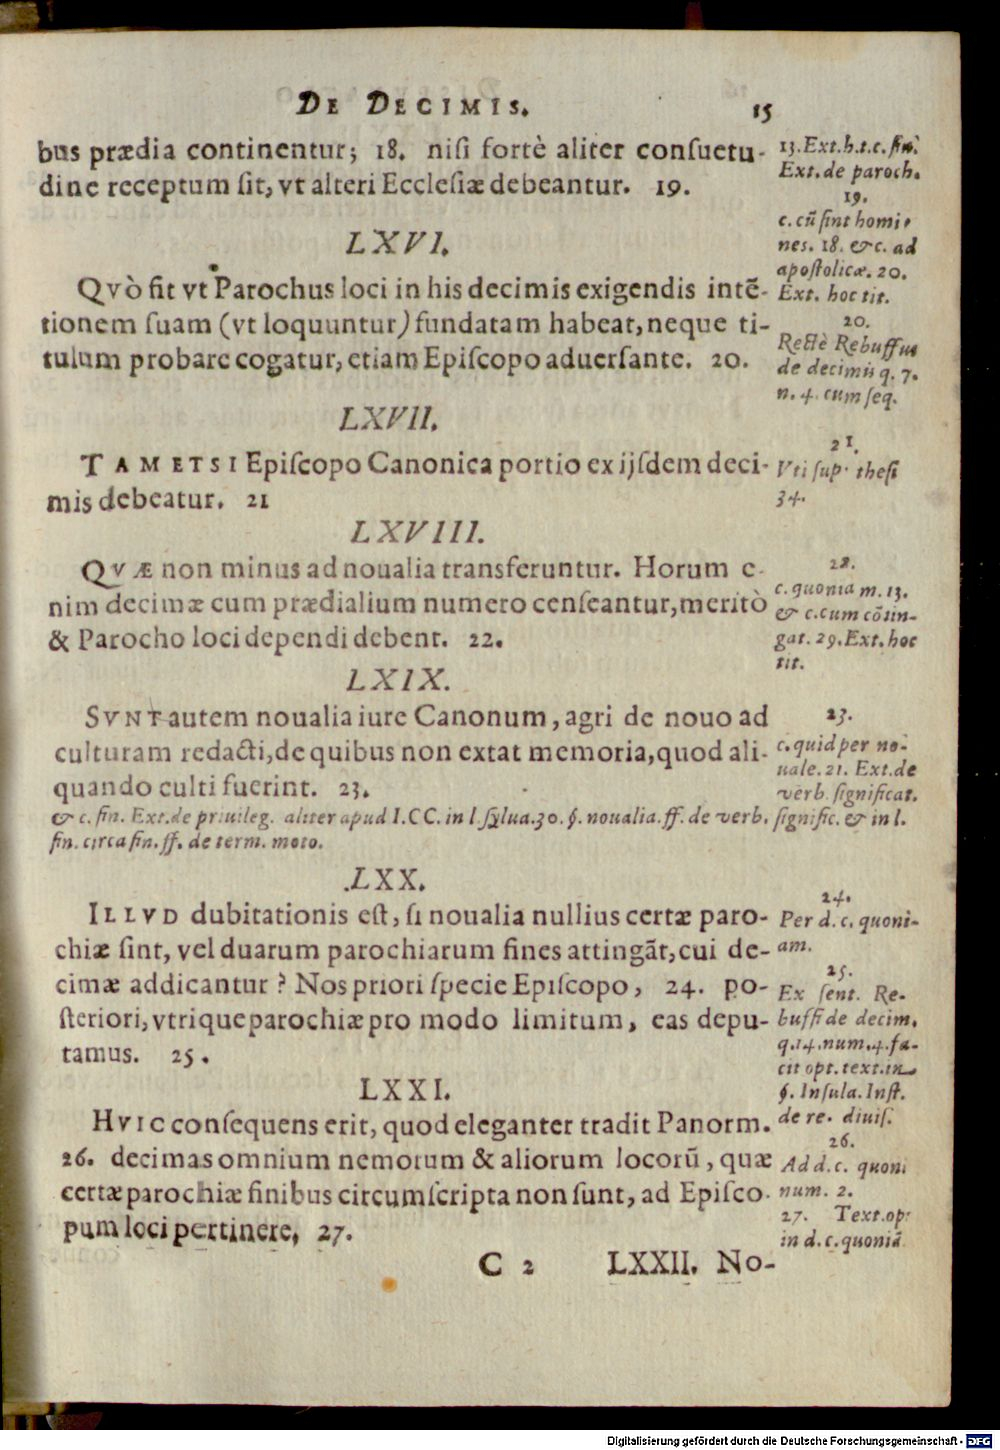 DE DECIMIS. 15
bus prædia continentur; 18. niſi fortè aliter conſuetu-
dine receptum ſit, vt alteri Eccleſiæ debeantur. 19.
LXVI.
Qvò fit vt Parochus loci in his decimis exigendis intẽ-
tionem ſuam (vt loquuntur) fundatam habeat, neque ti-
tulum probare cogatur, etiam Epiſcopo aduerſante. 20.
LXVII.
TAMETSI Epiſcopo Canonica portio ex ijſdem deci-
mis debeatur. 21
LXVIII.
QVÆ non minus ad noualia transferuntur. Horum e-
nim decimæ cum prædialium numero cenſeantur, meritò
& Parocho loci dependi debent. 22.
LXIX.
SVNT autem noualia iure Canonum, agri de nouo ad
culturam redacti, de quibus non extat memoria, quod ali-
quando culti fuerint. 23.
& c. fin. Ext. de priuileg. aliter apud I.CC. in l. ſylua. 30. §. noualia. ff. de verb. ſignific. & in l.
fin. circa fin. ff. de term. moto.
LXX.
ILLVD dubitationis eſt, ſi noualia nullius certæ paro-
chiæ ſint, vel duarum parochiarum fines attingãt, cui de-
cimæ addicantur? Nos priori ſpecie Epiſcopo, 24. po-
ſteriori, vtrique parochiæ pro modo limitum, eas depu-
tamus. 25.
LXXI.
HVIC conſequens erit, quod eleganter tradit Panorm.
26. decimas omnium nemorum & aliorum locorũ, quæ
certæ parochiæ finibus circumſcripta non ſunt, ad Epiſco-
pum loci pertinere, 27.
C 2 LXXII. No-
13. Ext. h. t. c. fin.
Ext. de paroch.
19.
c. cũ ſint homi-
nes. 18. & c. ad
apoſtolicæ. 20.
Ext. hoc tit.
20.
Rectè Rebuffus
de decimis q. 7.
n. 4. cum ſeq.
21.
Vti ſup. theſi
34.
22.
c. quoniam. 13.
& c. cum cõtin-
gat. 29. Ext. hoc
tit.
23.
c. quid per no-
uale. 21. Ext. de
verb. ſignificat.
24.
Per d. c. quoni-
am.
25.
Ex ſent. Re-
buffi de decim.
q. 14. num. 4. fa-
cit opt. text. in
§. Inſula. Inſt.
de re. diuiſ.
26.
Ad d. c. quoni
num. 2.
27. Text. op
in d. c. quoniã
Digitalisierung gefördert durch die Deutsche Forschungsgemeinschaft - DFG